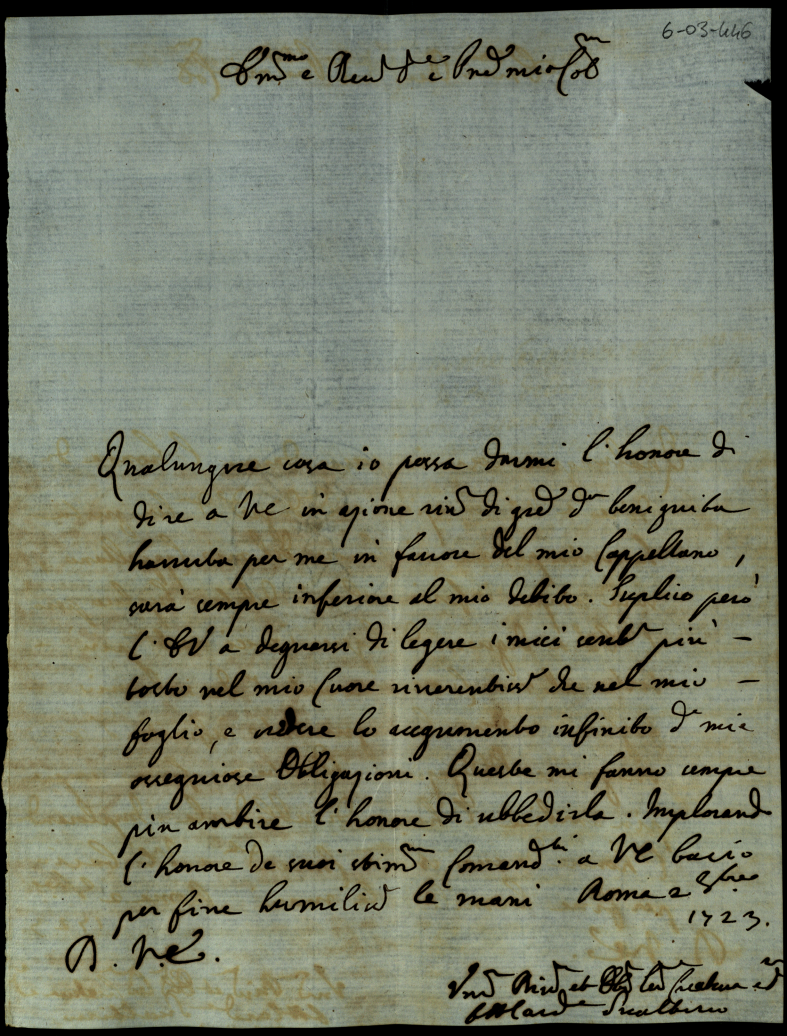 6-03-446
Em.mo e Rev S.e e Pred mio Col.mo
Qualunque cosa io possa darmi l'honore di
dire a VE in azione di gred d.a benignita
havuta per me in favore del mio Cappellano,
sarà sempre inferiore al mio debito. Suplico però
l'EV a degnarsi di legere i miei più –
tosto nel mio Cuore che nel mio –
foglio, e vedere lo accrumento infinito d.e mie
ossequiose Obligazioni. Queste mi fanno sempre
più ambire l'honore di ubbedirla. Implorand
l'honore de suoi stim.mi Comand.ti a VE bacio
per fine humilis le mani Roma 2 8bre
1723.
D. V.E.